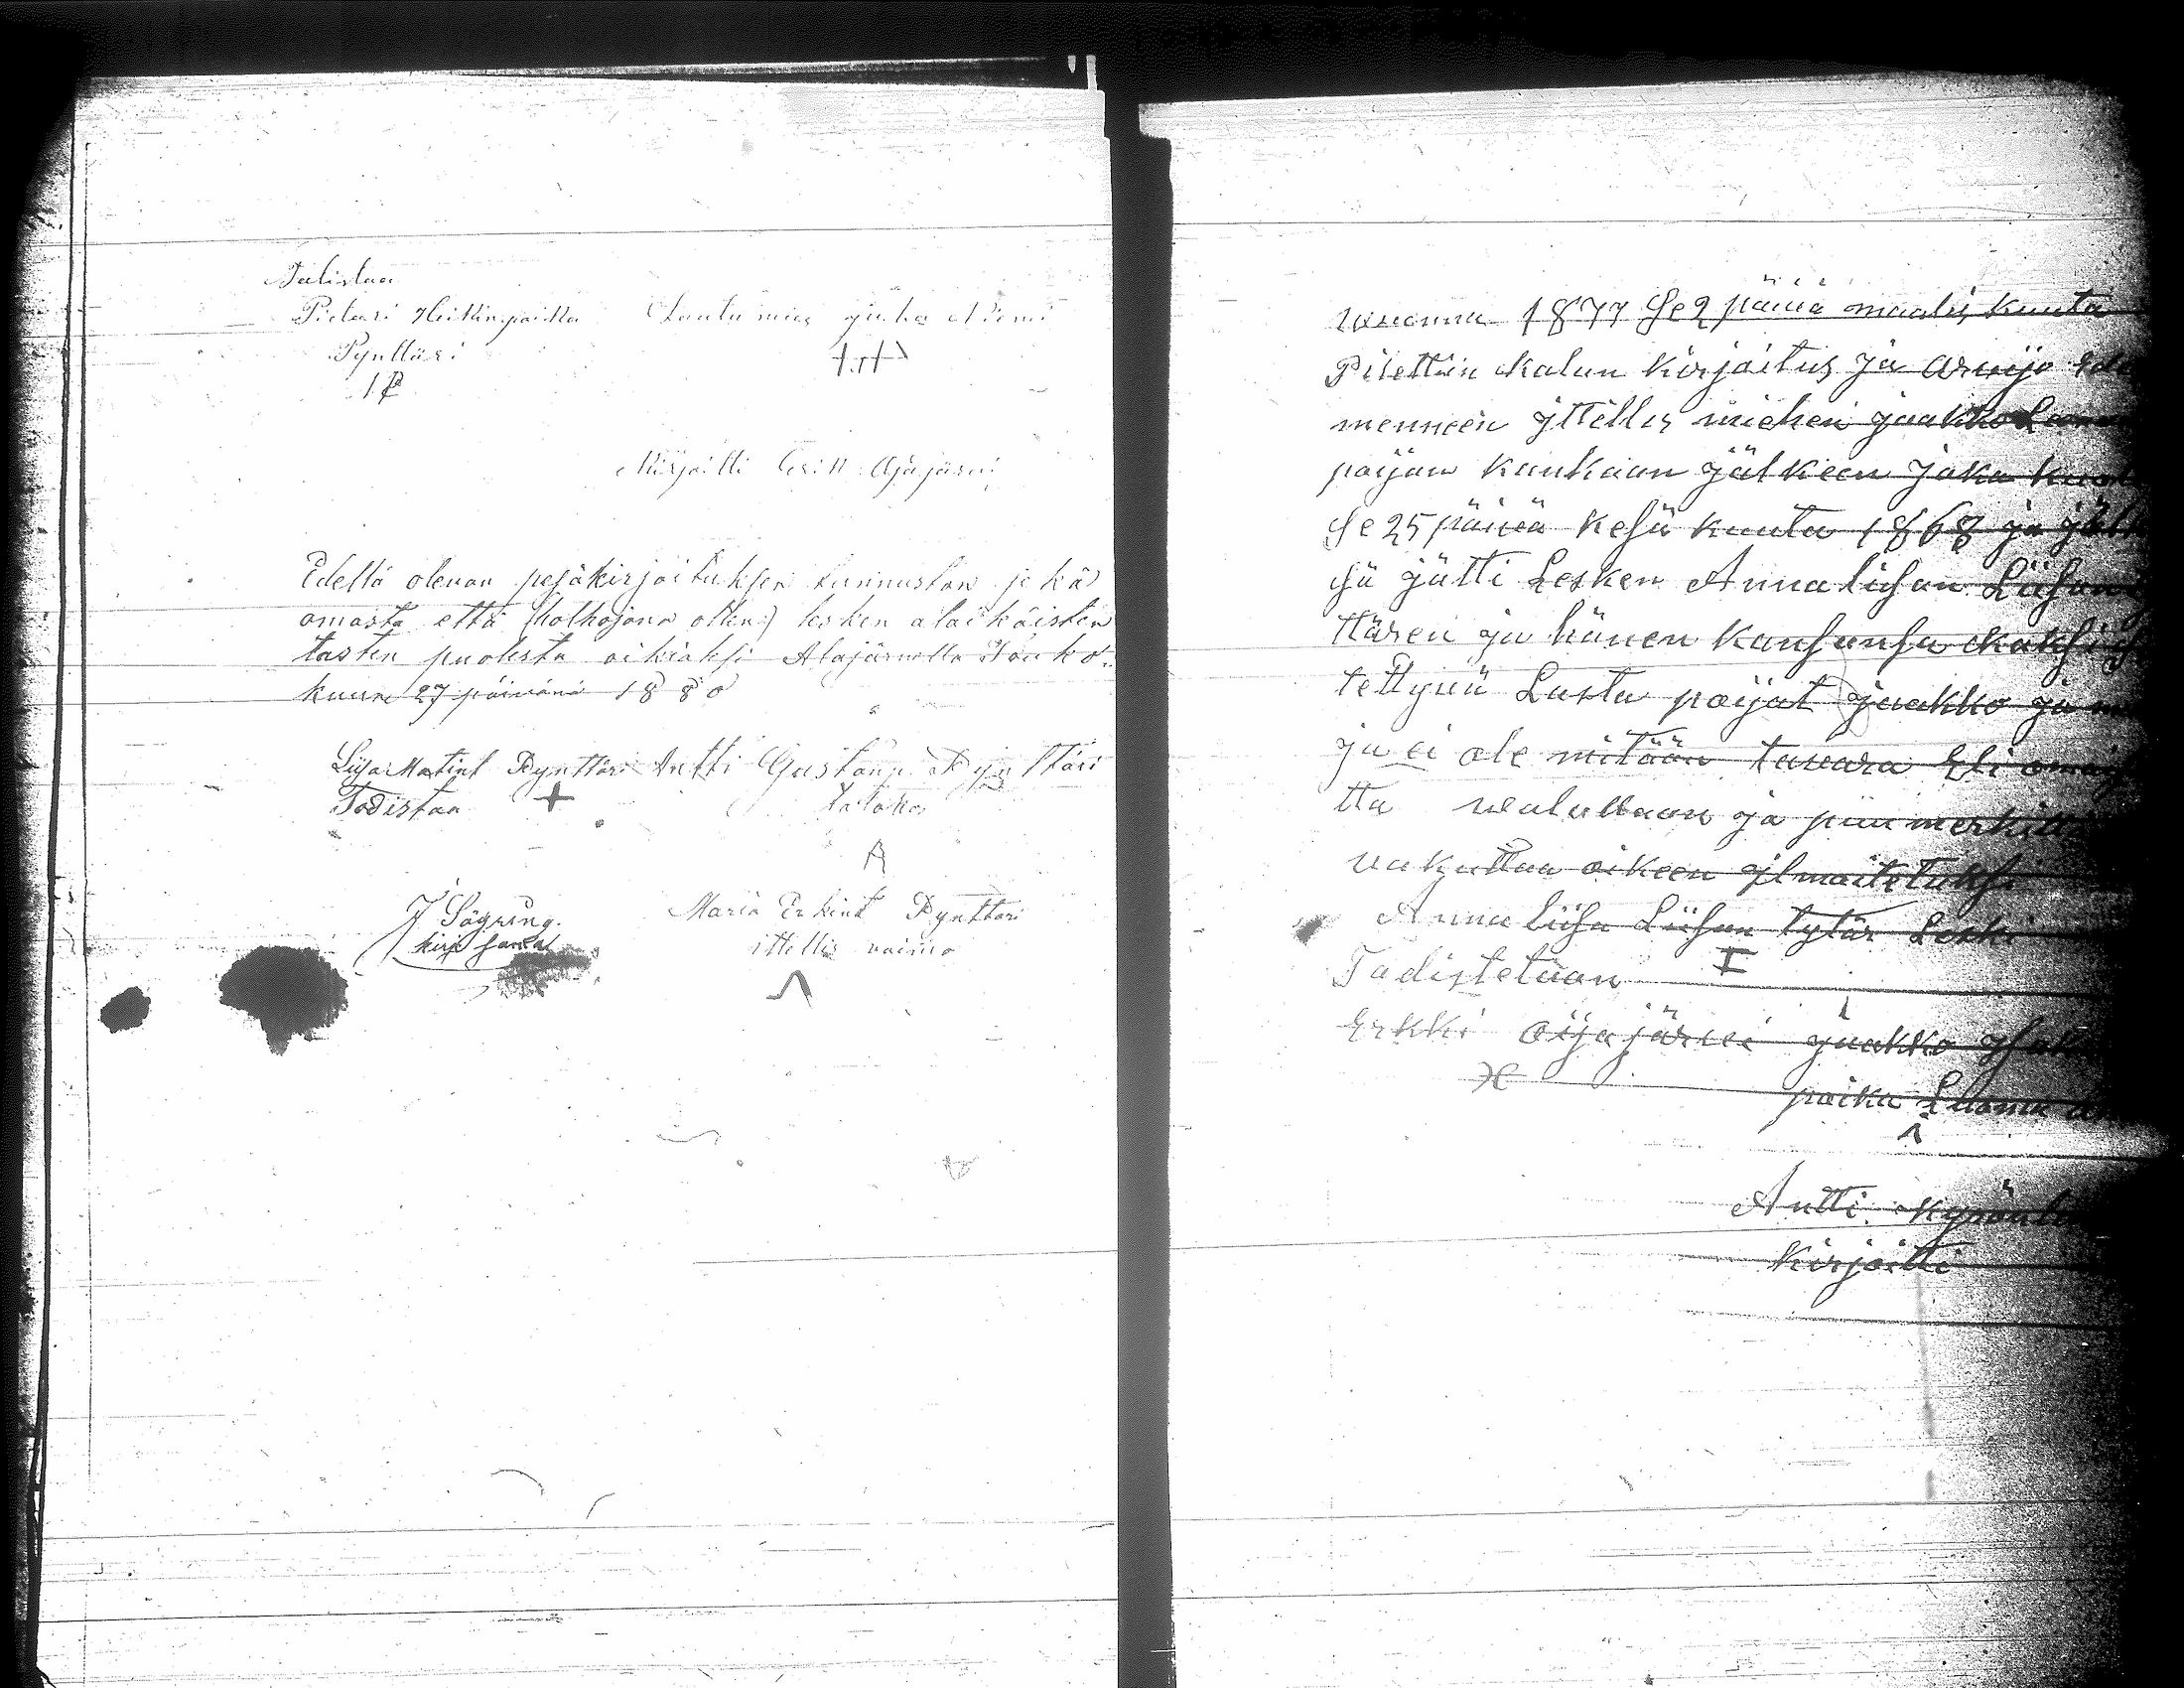 Talistaa
Pietari Heikinpoika Lautu mies juha Niemi
Pynttäri
Kirjoitti Erik Ojajärvi
Edellä olevan pesäkirjoituksen tunnustan sekä
omasta että (holhojana ollen) lesken alaikäisten
lasten puolesta oikiaksi Alajärvella Touko-
kuun 27 päivänä 1880
Liisa Matint Pynttäri Antti Gustaup. Pynttäri
Todistaa + Talokas
J Sågring.
Maria Erkint Pynttäri
ittellis vaimo
vuonna 1877 Se 2 päivä maalis kuuta
Pitettiin kalun kirjoitus ja arvijo Ede
menneen ittellis miehen jaakko
poijan kankaan jälkeen joka kuol
Se 25 päivä kesä kuuta 1868 ja jält
sä jätti Lesken Anna liisan Liisan
ttären ja hänen kansansa kaksi
tettynä Lasta poijat jaakko ja
ja ei ole mitään tavara Eli
tta valallaan ja puu merkill
vakuttaa oikeen ilmoitetuksi
Anna liisa Liisan tytär Leski
Todistetaan
Erkki oijajärvi jaakko Isak
poika Luoma
Antti Kyrönla
Kirjoitti